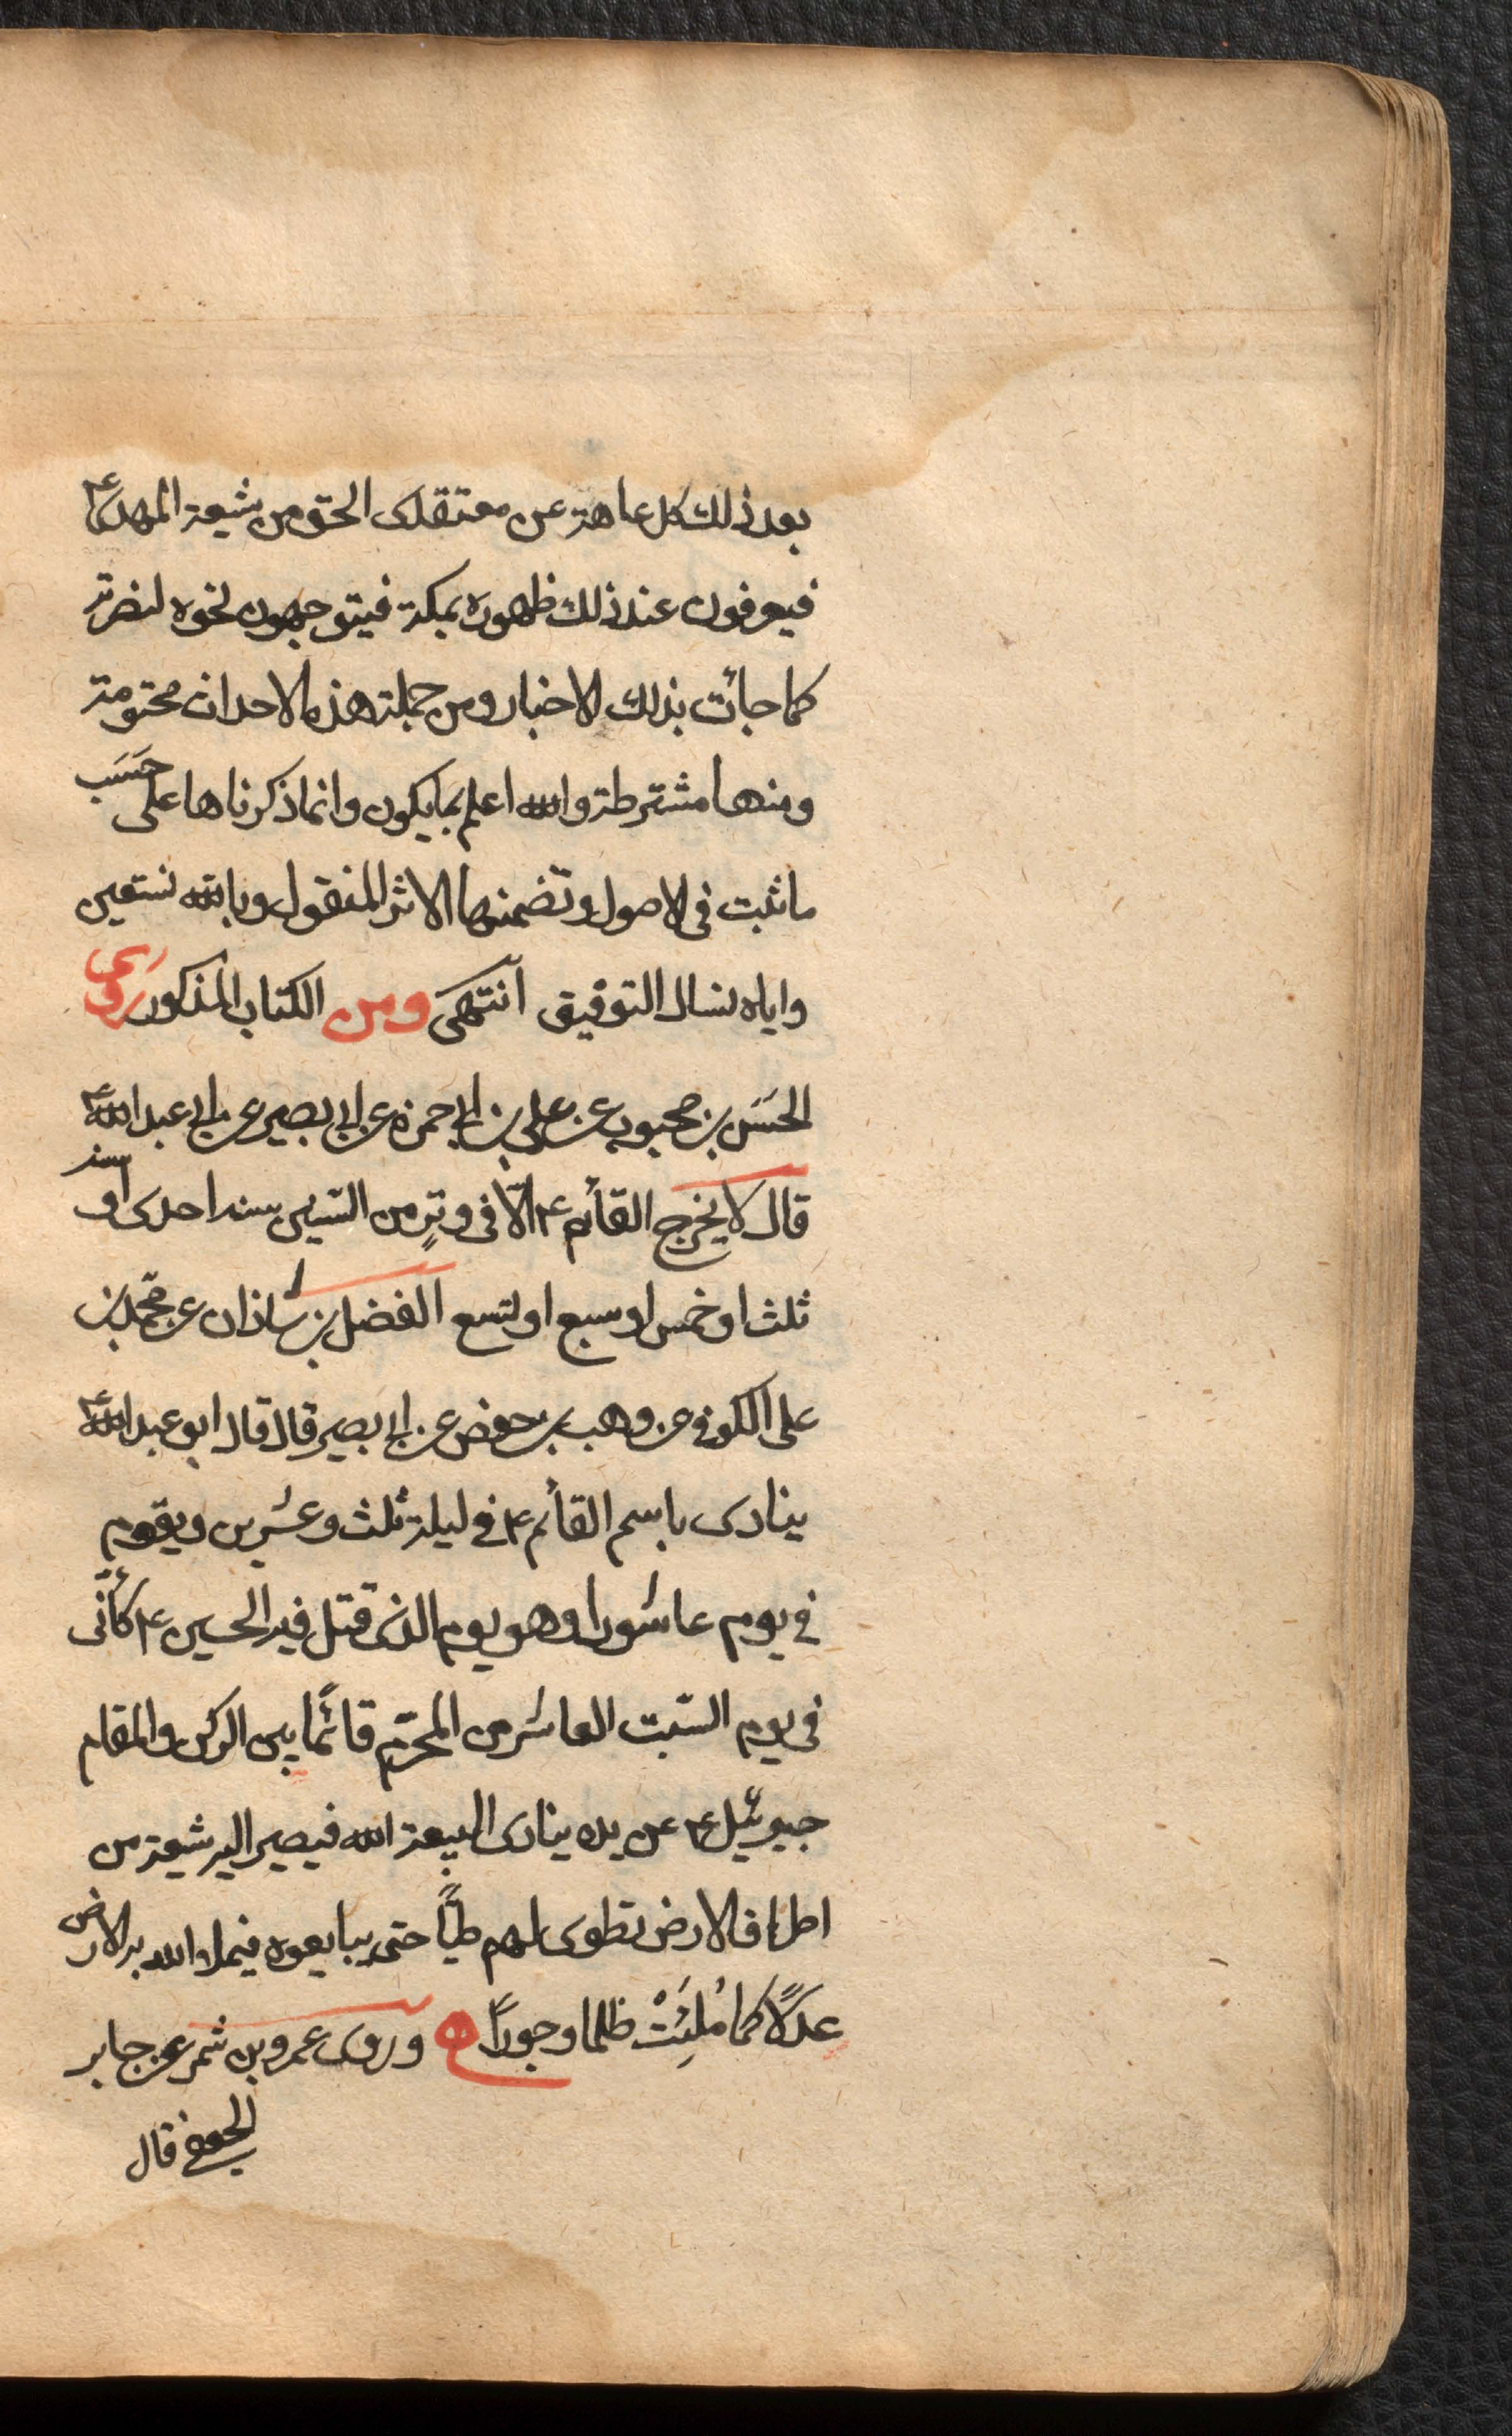 بعد ذلك كل عاهة عن معتقدى الحق من شيعة المهدى ع
فيعرفون عند ذلك ظهوره بمكة فيتوجهون نحوه لنصرته
كما جائت بذلك الاخبار ومن جملة هذه الاحداث محتومة
ومنها مشترطة والله اعلم بما يكون وانما ذكرناها على حَسَب
ما ثبت فى الاصول وتضمنها الاثر المنقول وبالله نستعين
واياه نسال التوفيق انتهى ومن الكتاب المذكور روى
الحسَن بن محبوب عن على بن ابى حمزة عن ابى بصير عن ابى عبد الله ع
قال لا يخرج القائم ع الّا فى وترٍ من السنين سنة احدى او سنة
ثلث او خمس او سبع او تسع الفضل بن شاذان عن محمّد بن
على الكوفى عن وهب بن حفص عن ابى بصير قال قال ابو عبد الله ع
ينادى باسم القائم ع فى ليلة ثلث وعشرين ويقوم
فى يوم عاشورا وهو يوم الذى قتل فيه الحسين ع كأنّى
فى يوم السّبت العاشر من المحرّم قائمًا بين الركن والمقام
جبرئيل ع عن يده ينادى البيعة الله فيصير اليه شيعة من
اطراف الارض تطوى لهم طيًّا حتى يبايعوه فيملاء الله به الارض
عدلًا كما مُلِئَتْ ظلما وجورًا وروى عمرو بن شمر عن جابر
الجعفى قال